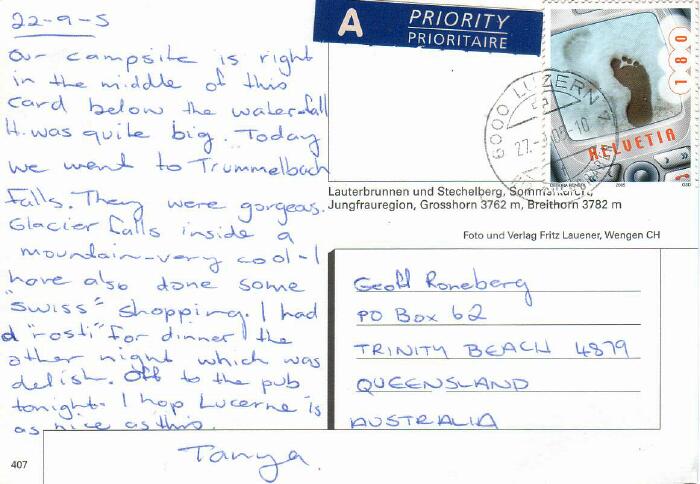 22-9-5
Our campsite is right
in the middle of this
card below the waterfall
It was quite big. Today
we went to Trummelbach
falls. They were gorgeous.
Glacier falls inside a
mountain-very cool-I
have also done some
"swiss" shopping. I had
"rosti" for dinner the
other night which was
delish. Off to the pub
tonight. I hop Lucerne is
as nice as this.
Tanya.
407
A PRIORITY
PRIORITAIRE
6000 LUZERN
HELVETIA
180
2005
Lauterbrunnen und Stechelberg,
Jungfrauregion, Grosshorn 3762 m, Breithorn 3782 m
Foto und Verlag Fritz Lauener, Wengen CH
Geoff Roneberg
PO Box 62
TRINITY BEACH 4879
QUEENSLAND
AUSTRALIA